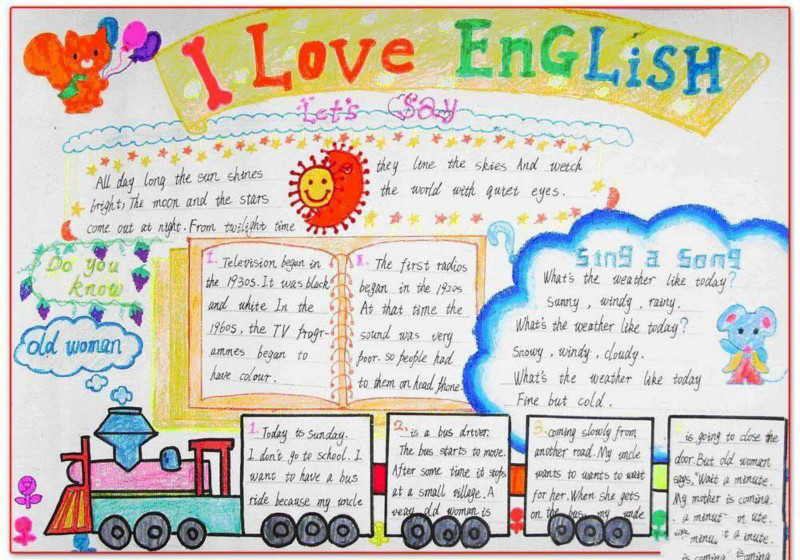 I LOVE ENGLISH
Let's Say
All day long the sun shines
bright; The moon and the stars
come out at night. From twilight time
they line the skies And wetch
the world with quiet eyes.
Do you
know
old woman
1. Television began in
the 1930s. It was black
and white In the
1960s, the TV progr-
ammes began to
have colour.
The first radios
began in the 1920s
At that time the
sound was very
poor. so people had
to them on head phone.
Sing a Song
What's the weather like today?
Sunny, windy, rainy.
What's the weather like today?
Snowy, windy, cloudy.
What's the weather like today
Fine but cold.
1. Today is sunday.
I don't go to school. I
want to have a bus
ride because my uncle
2. is a bus driver.
The bus starts to move.
After some time it stops
at a small village. A
very old woman is
3. coming slowly from
another road. My uncle
wants to wants to wait
for her. When she gets
on the bus, my uncle
is going to close the
door. But old woman
says, "Wait a minute.
My mother is coming.